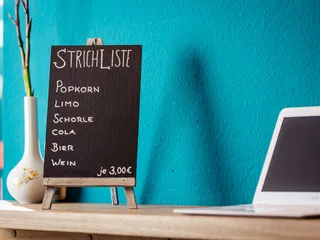 StrichListe
Popkorn
Limo
Schorle
Cola
Bier
Wein
je 3,00€